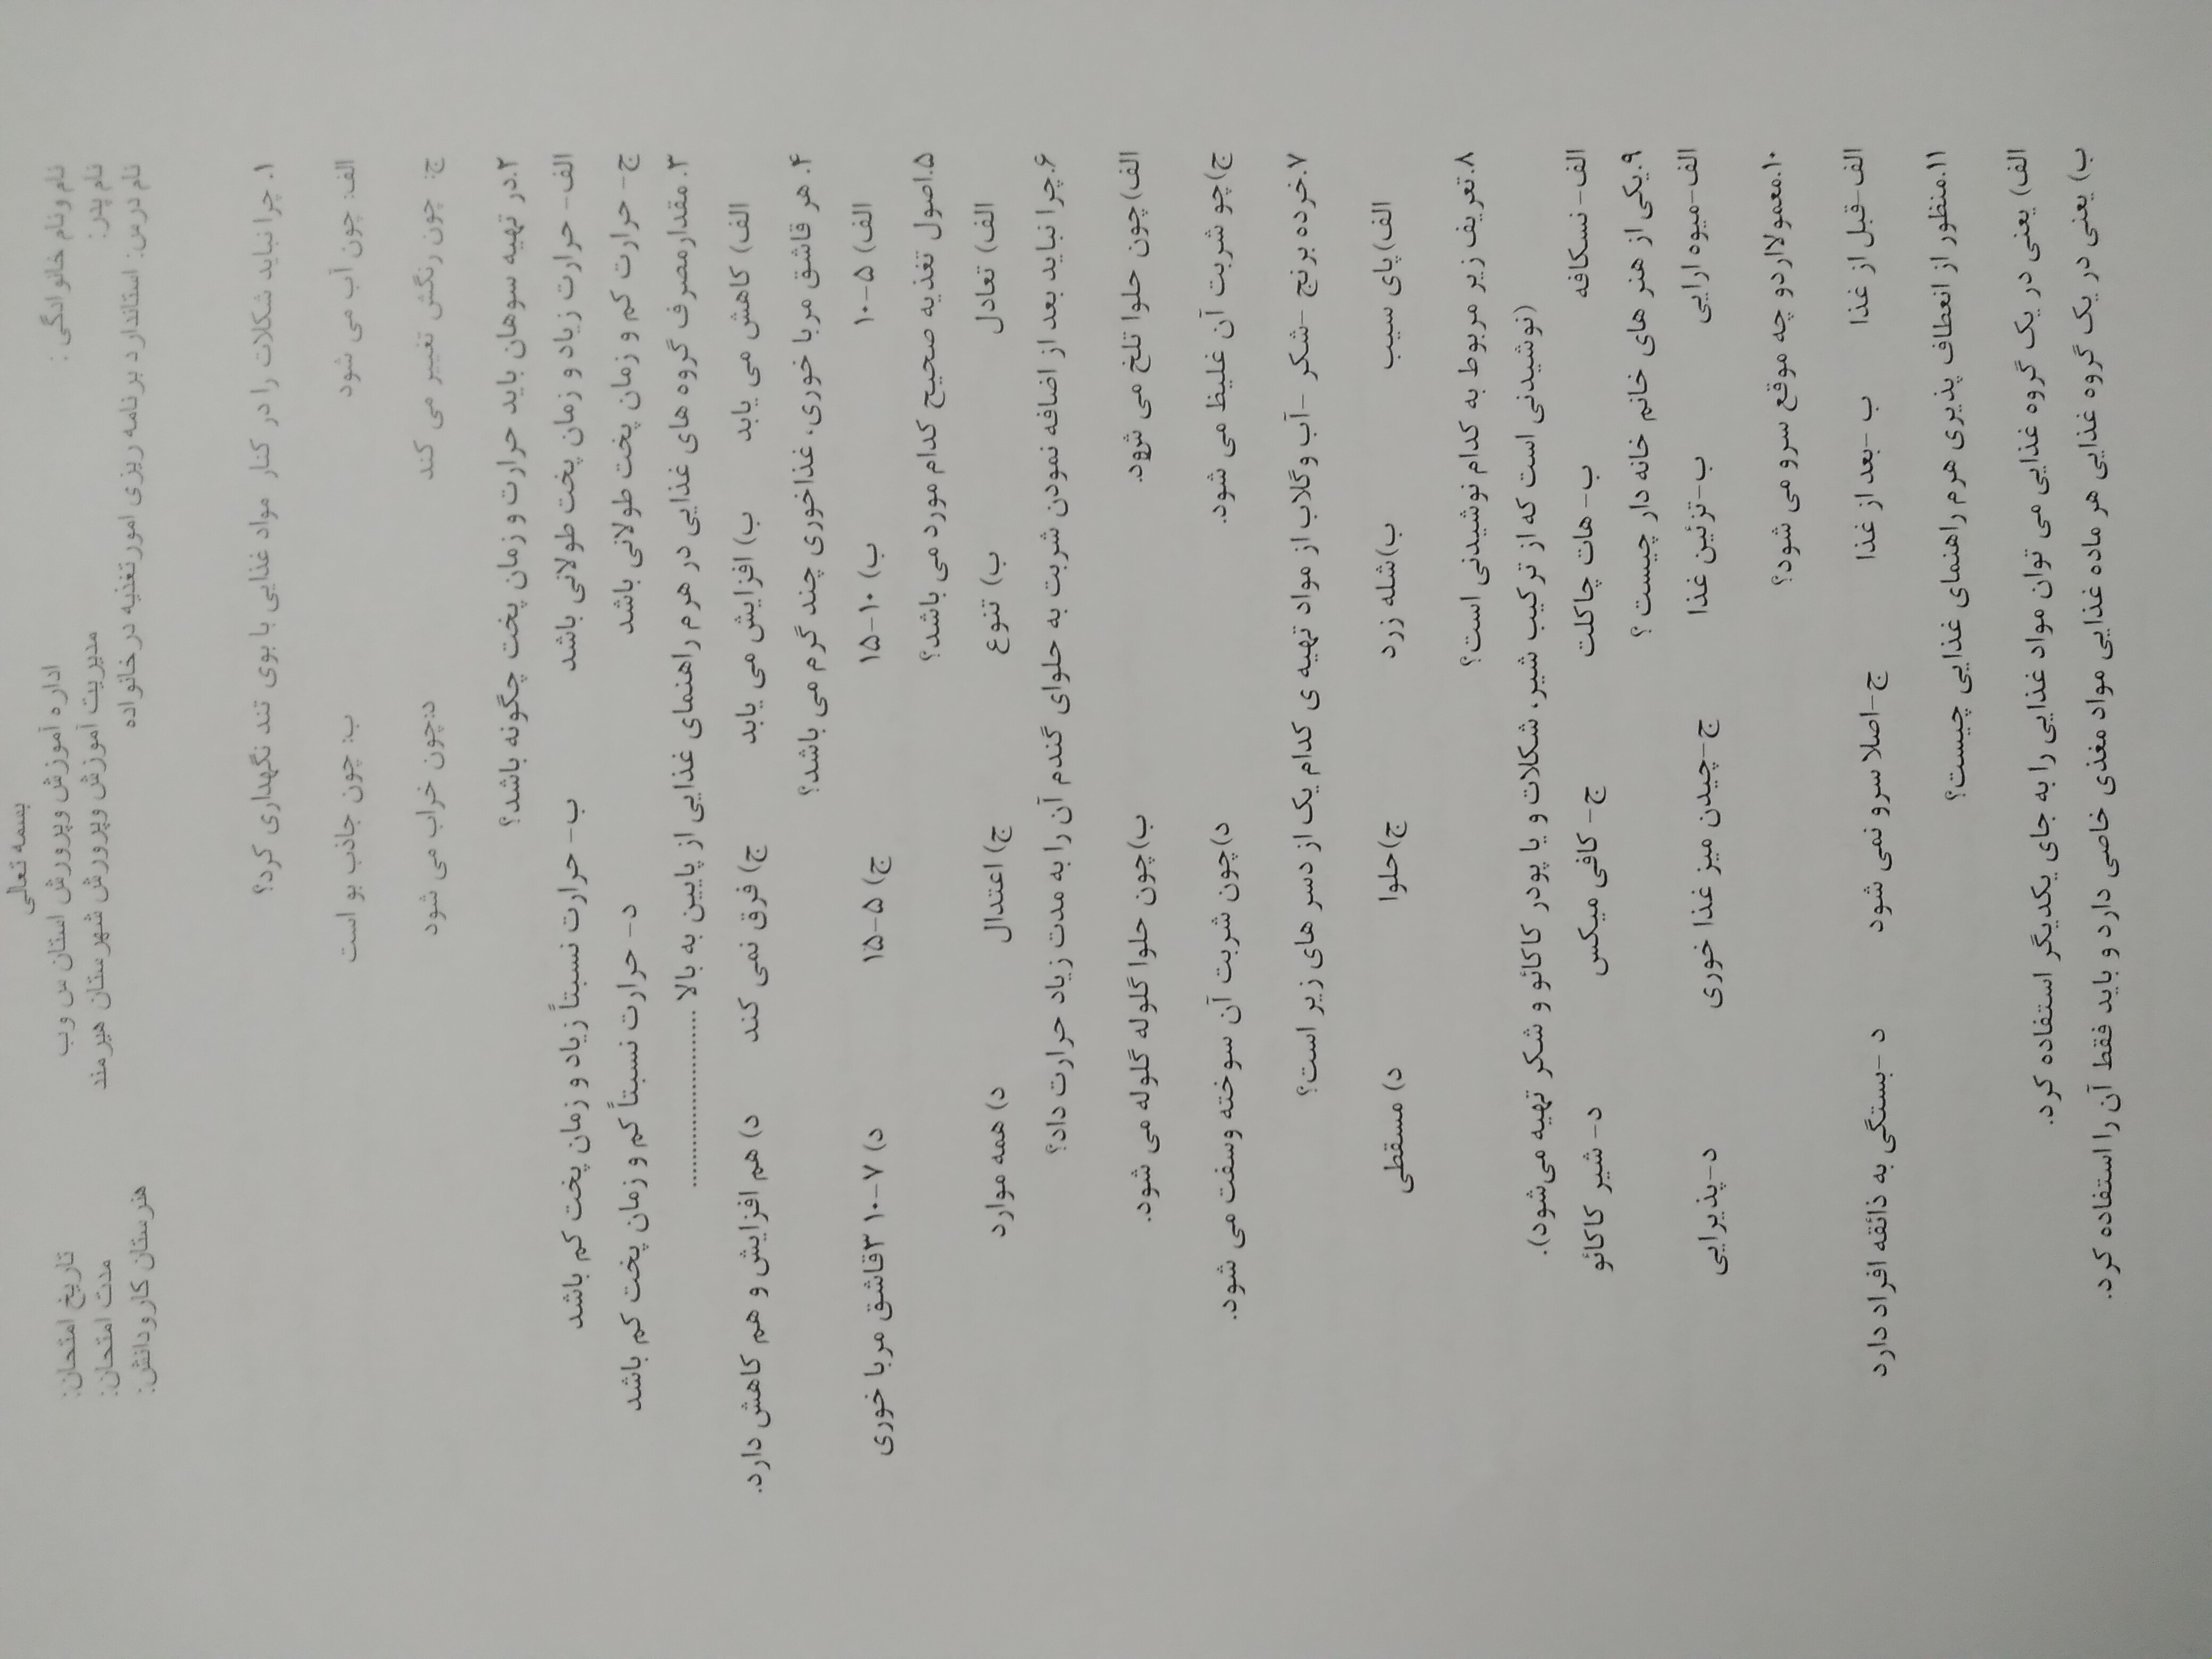 بسمه تعالی
نام ونام خانوادگی : اداره آموزش وپرورش استان س وب تاریخ امتحان:
نام پدر: مدیریت آموزش وپرورش شهرستان هیرمند مدت امتحان:
نام درس: استاندارد برنامه ریزی امورتغذیه درخانواده هنرستان کارودانش:
۱. چرا نباید شکلات را در کنار مواد غذایی با بوی تند نگهداری کرد؟
الف: چون آب می شود ب: چون جاذب بو است
ج: چون رنگش تغییر می کند د:چون خراب می شود
۲.در تهیه سوهان باید حرارت و زمان پخت چگونه باشد؟
الف- حرارت زیاد و زمان پخت طولانی باشد ب- حرارت نسبتاً زیاد و زمان پخت کم باشد
ج- حرارت کم و زمان پخت طولانی باشد د- حرارت نسبتاً کم و زمان پخت کم باشد
۳. مقدارمصرف گروه های غذایی در هرم راهنمای غذایی از پایین به بالا ..........................
الف) کاهش می یابد ب) افزایش می یابد ج) فرق نمی کند د) هم افزایش و هم کاهش دارد.
۴. هر قاشق مربا خوری، غذاخوری چند گرم می باشد؟
الف) ۵-۱۰ ب) ۱۰-۱۵ ج) ۵-۱۵ د) ۷-۱۰ ۳قاشق مربا خوری
۵.اصول تغذیه صحیح کدام مورد می باشد؟
الف) تعادل ب) تنوع ج) اعتدال د) همه موارد
۶.چرا نباید بعد از اضافه نمودن شربت به حلوای گندم آن را به مدت زیاد حرارت داد؟
الف)چون حلوا تلخ می شود. ب)چون حلوا گلوله گلوله می شود.
ج)چو شربت آن غلیظ می شود. د)چون شربت آن سوخته وسفت می شود.
۷.خرده برنج -شکر -آب وگلاب از مواد تهیه ی کدام یک از دسر های زیر است؟
الف)پای سیب ب)شله زرد ج)حلوا د) مسقطی
۸.تعریف زیر مربوط به کدام نوشیدنی است؟
(نوشیدنی است که از ترکیب شیر، شکلات و یا پودر کاکائو و شکر تهیه می‌شود).
الف- نسکافه ب- هات چاکلت ج- کافی میکس د- شیر کاکائو
۹.یکی از هنر های خانم خانه دار چیست ؟
الف-میوه ارایی ب-تزئین غذا ج-چیدن میز غذا خوری د-پذیرایی
۱۰.معمولااردو چه موقع سرو می شود؟
الف-قبل از غذا ب -بعد از غذا ج-اصلا سرو نمی شود د -بستگی به ذائقه افراد دارد
۱۱.منظور از انعطاف پذیری هرم راهنمای غذایی چیست؟
الف) یعنی در یک گروه غذایی می توان مواد غذایی را به جای یکدیگر استفاده کرد.
ب) یعنی در یک گروه غذایی هر ماده غذایی مواد مغذی خاصی دارد و باید فقط آن را استفاده کرد.